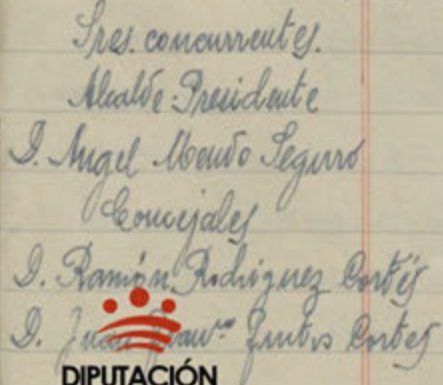 Sres. concurrentes.
Alcalde-Presidente
D. Angel Mendo Seguro
Concejales
D. Ramón Rodriguez Cortés
D. Juan Cortes
DIPUTACIÓN